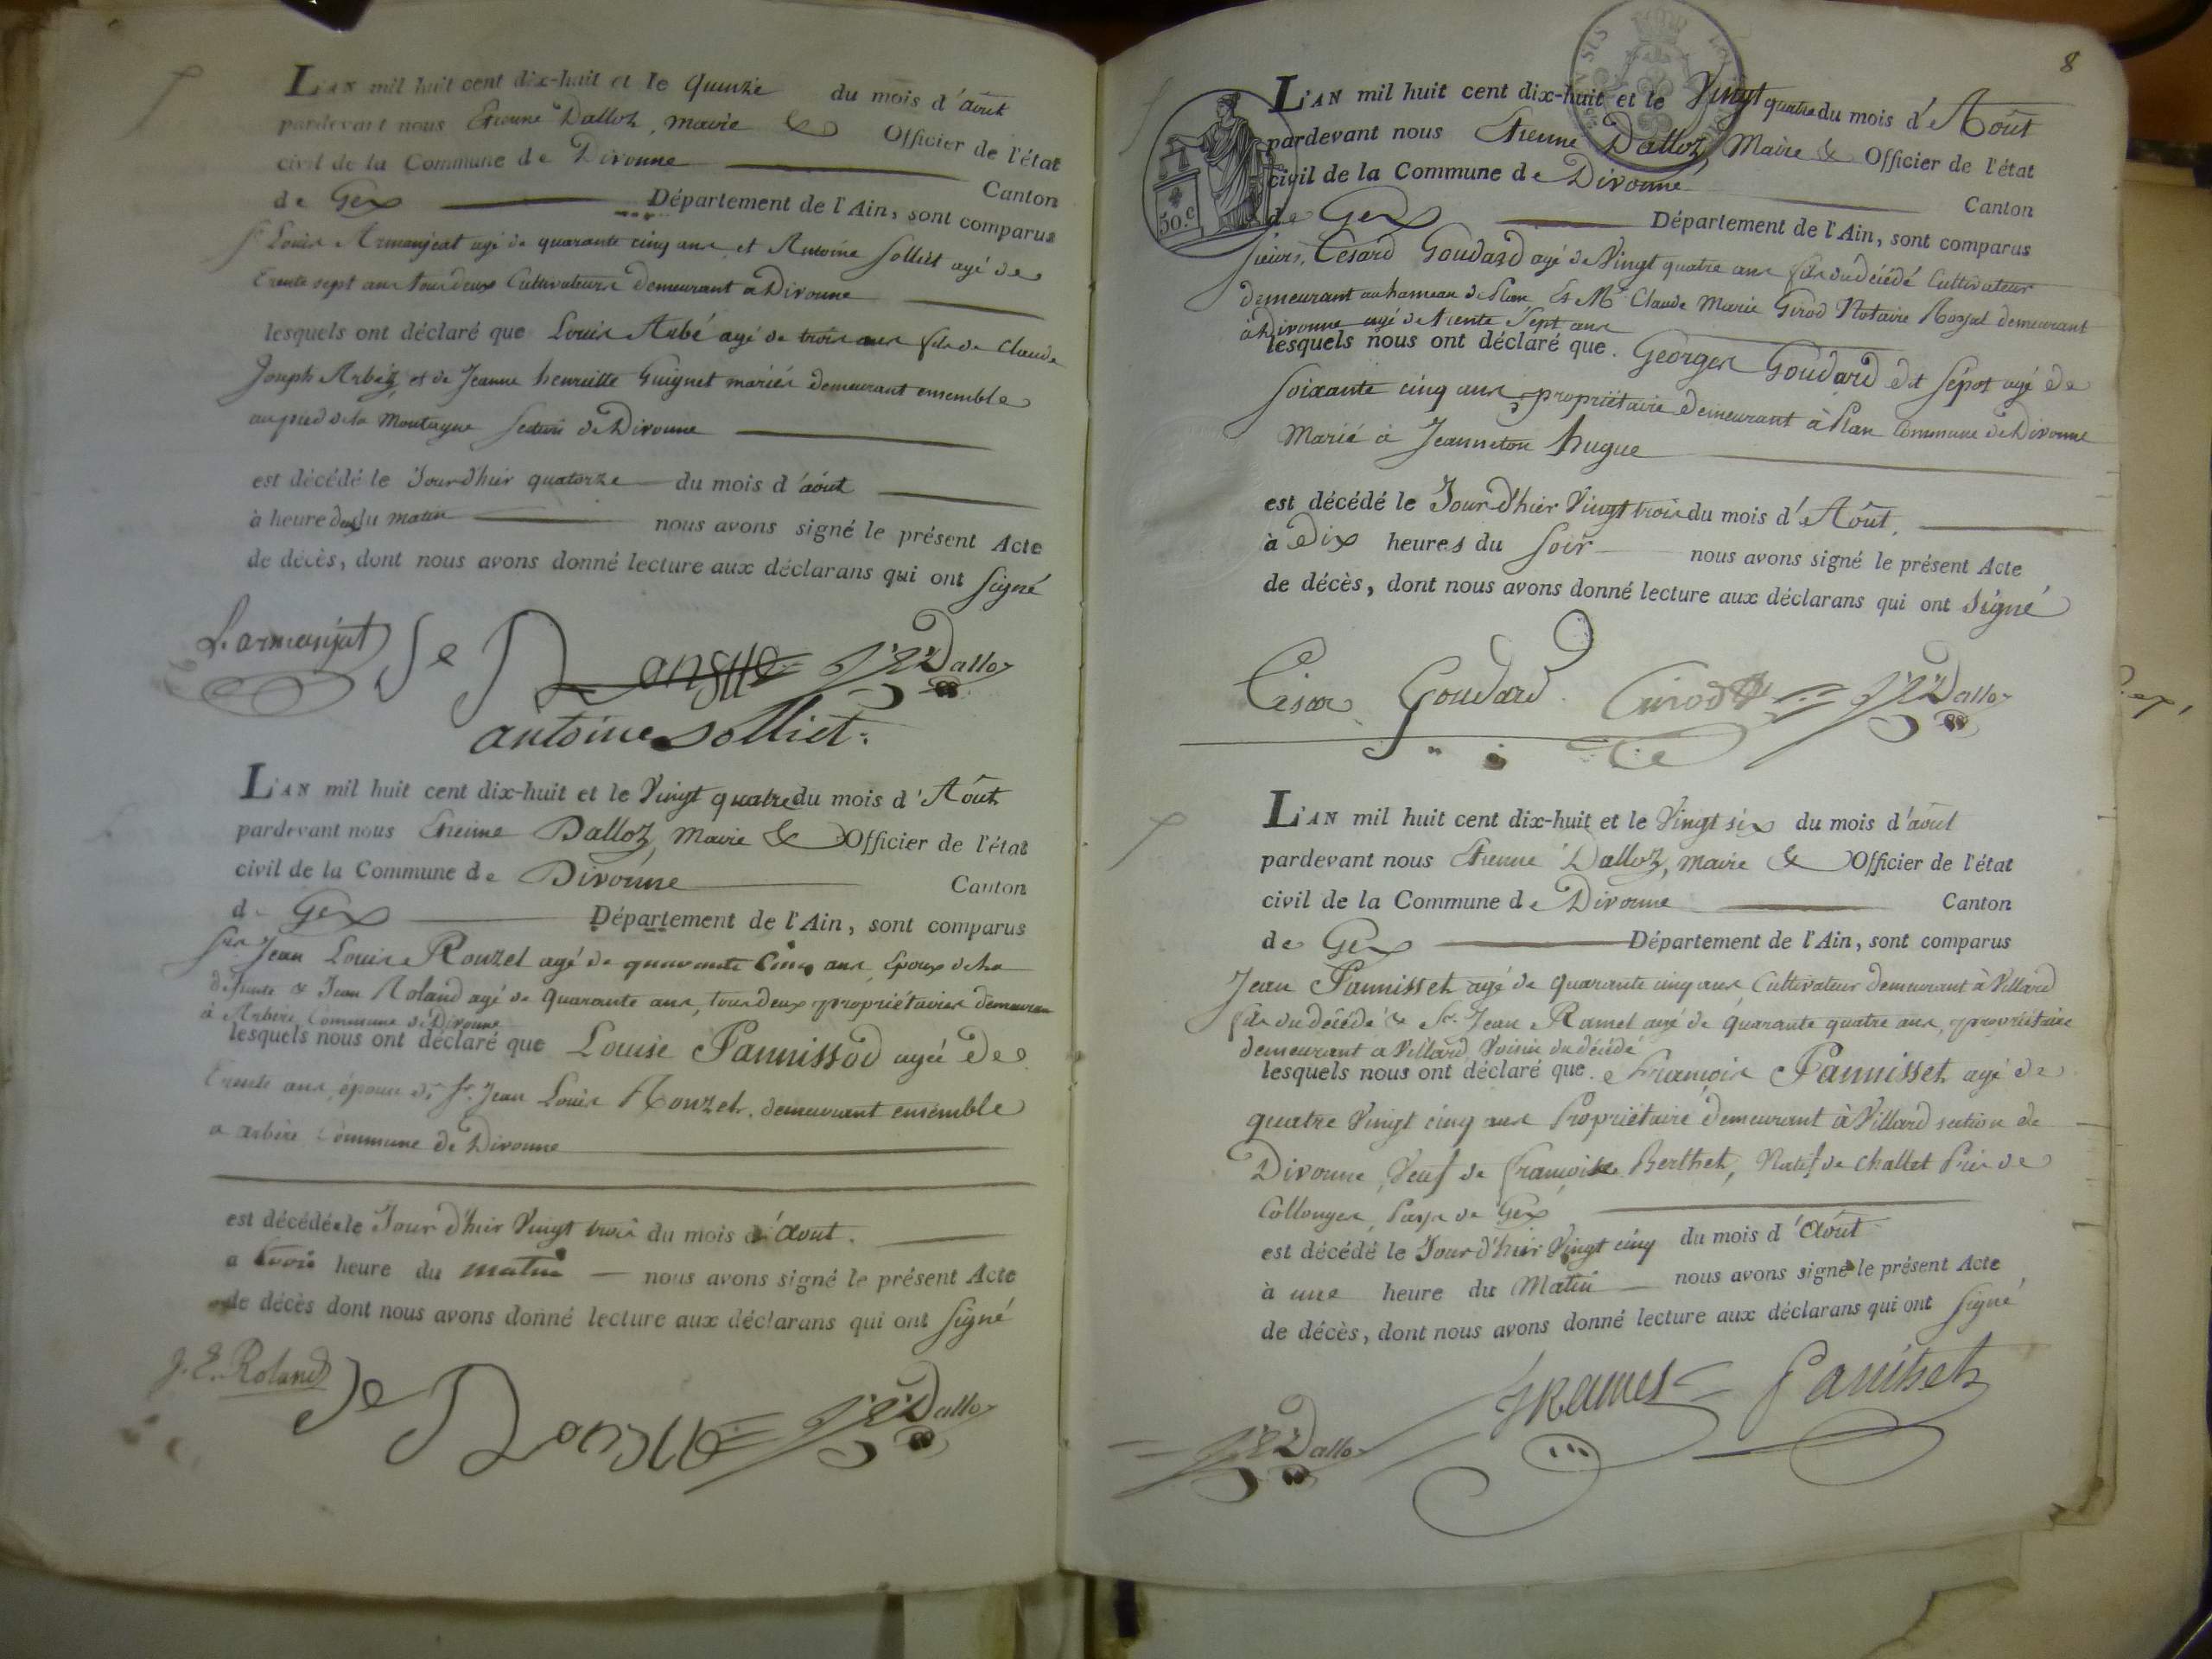 L'AN mil huit cent dix-huit et le quinze du mois d'aout
pardevant nous Etienne Dalloz, maire & Officier de l'état
civil de la Commune de Divonne Canton
de Gex Département de l'Ain, sont comparus
Sr Louis Armanjeat agé de quarante cinq ans et Antoine Solliet agé de
trente sept ans tous deux Cultivateurs demeurant a Divonne
lesquels ont déclaré que Louis Arbé agé de trois ans fils de Claude
Joseph Arbez et de Jeanne henriette Guignet mariés demeurant ensemble
au pied de la Montagne Section de Divonne
est décédé le Jourd'hier quatorze du mois d'aout
à heure du matin nous avons signé le présent Acte
de décès, dont nous avons donné lecture aux déclarans qui ont signé
L. armanjat Je Dallo
antoine solliet
L'AN mil huit cent dix-huit et le Vingt quatre du mois d'Aout
pardevant nous Etienne Dalloz, Maire & Officier de l'état
civil de la Commune de Divonne Canton
de Gex Département de l'Ain, sont comparus
Srs Jean Louis Rouzet agé de quarante Cinq ans, Epoux de la
défunte & Jean Roland agé de quarante ans, tous deux propriétaires demeuran
à Arbère Commune de Divonne
lesquels nous ont déclaré que Louise Pannissod agée de
trente ans, épouse de Sr. Jean Louis Rouzet, demeurant ensemble
a arbère Commune de Divonne
est décédée le Jour d'hier Vingt trois du mois d'Aout.
a trois heure du matin nous avons signé le présent Acte
de décès dont nous avons donné lecture aux déclarans qui ont signé
J. E. Roland Je Dallo
8
50.c
L'AN mil huit cent dix-huit et le Vingt quatre du mois d'Aout
pardevant nous Etienne Dalloz, Maire & Officier de l'état
civil de la Commune de Divonne Canton
de Gex Département de l'Ain, sont comparus
sieurs, César Goudard agé de Vingt quatre ans fils du décédé Cultivateur
demeurant au hameau de Plan, Et Mr Claude Marie Girod Notaire Royal demeurant
à Divonne agé de trente Sept ans
lesquels nous ont déclaré que. Georges Goudard dit Sépot agé de
soixante cinq ans propriétaire demeurant à Plan Commune de Divonne
Marié à Jeanneton hugue
est décédé le Jour d'hier Vingt trois du mois d'Aout,
à Dix heures du Soir nous avons signé le présent Acte
de décès, dont nous avons donné lecture aux déclarans qui ont Signé
César Goudard Girod Dallo
L'AN mil huit cent dix-huit et le Vingt six du mois d'aout
pardevant nous Etienne Dalloz, maire & Officier de l'état
civil de la Commune de Divonne Canton
de Gex Département de l'Ain, sont comparus
Jean Pannisset agé de quarante cinq ans Cultivateur demeurant à Villard
fils du décédé & Sr. Jean Ramel agé de quarante quatre ans, propriétaire
demeurant a Villard, Voisin du décédé
lesquels nous ont déclaré que. François Pannisset agé de
quatre Vingt cinq ans Propriétaire demeurant à Villard section de
Divonne, Veuf de françoise Berthet, Natif de Challet Près de
Collonges, Pays de Gex
est décédé le Jour d'hier Vingt cinq du mois d'Aout
à une heure du Matin nous avons signé le présent Acte
de décès, dont nous avons donné lecture aux déclarans qui ont signé
Dallo JRamel Panisset